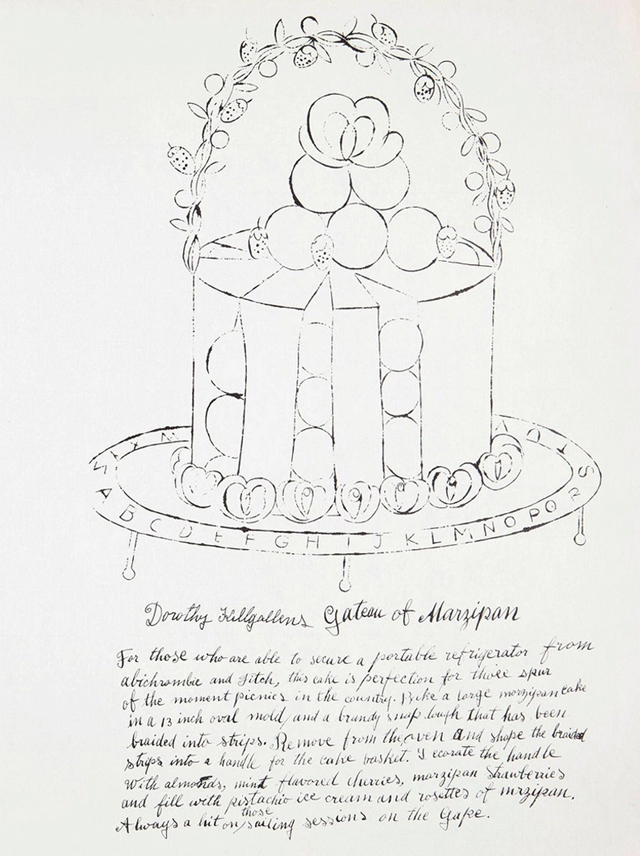 A B C D E F G H I J K L M N O P Q R S
Dorothy Killgallens Gateau of Marzipan
For those who are able to secure a portable refrigerator from
abichrombie and Fitch, this cake is perfection for those spur
of the moment picnics in the country. Bake a large marzipan cake
in a 13 inch oval mold and a brandy snap dough that has been
braided into strips. Remove from the oven and shape the braided
strips into a handle for the cake basket. Decorate the handle
with almonds, mint flavored cherries, marzipan strawberries
and fill with pistachio ice cream and rosettes of mrzipan.
Always a hit on those sailing sessions on the Gape.